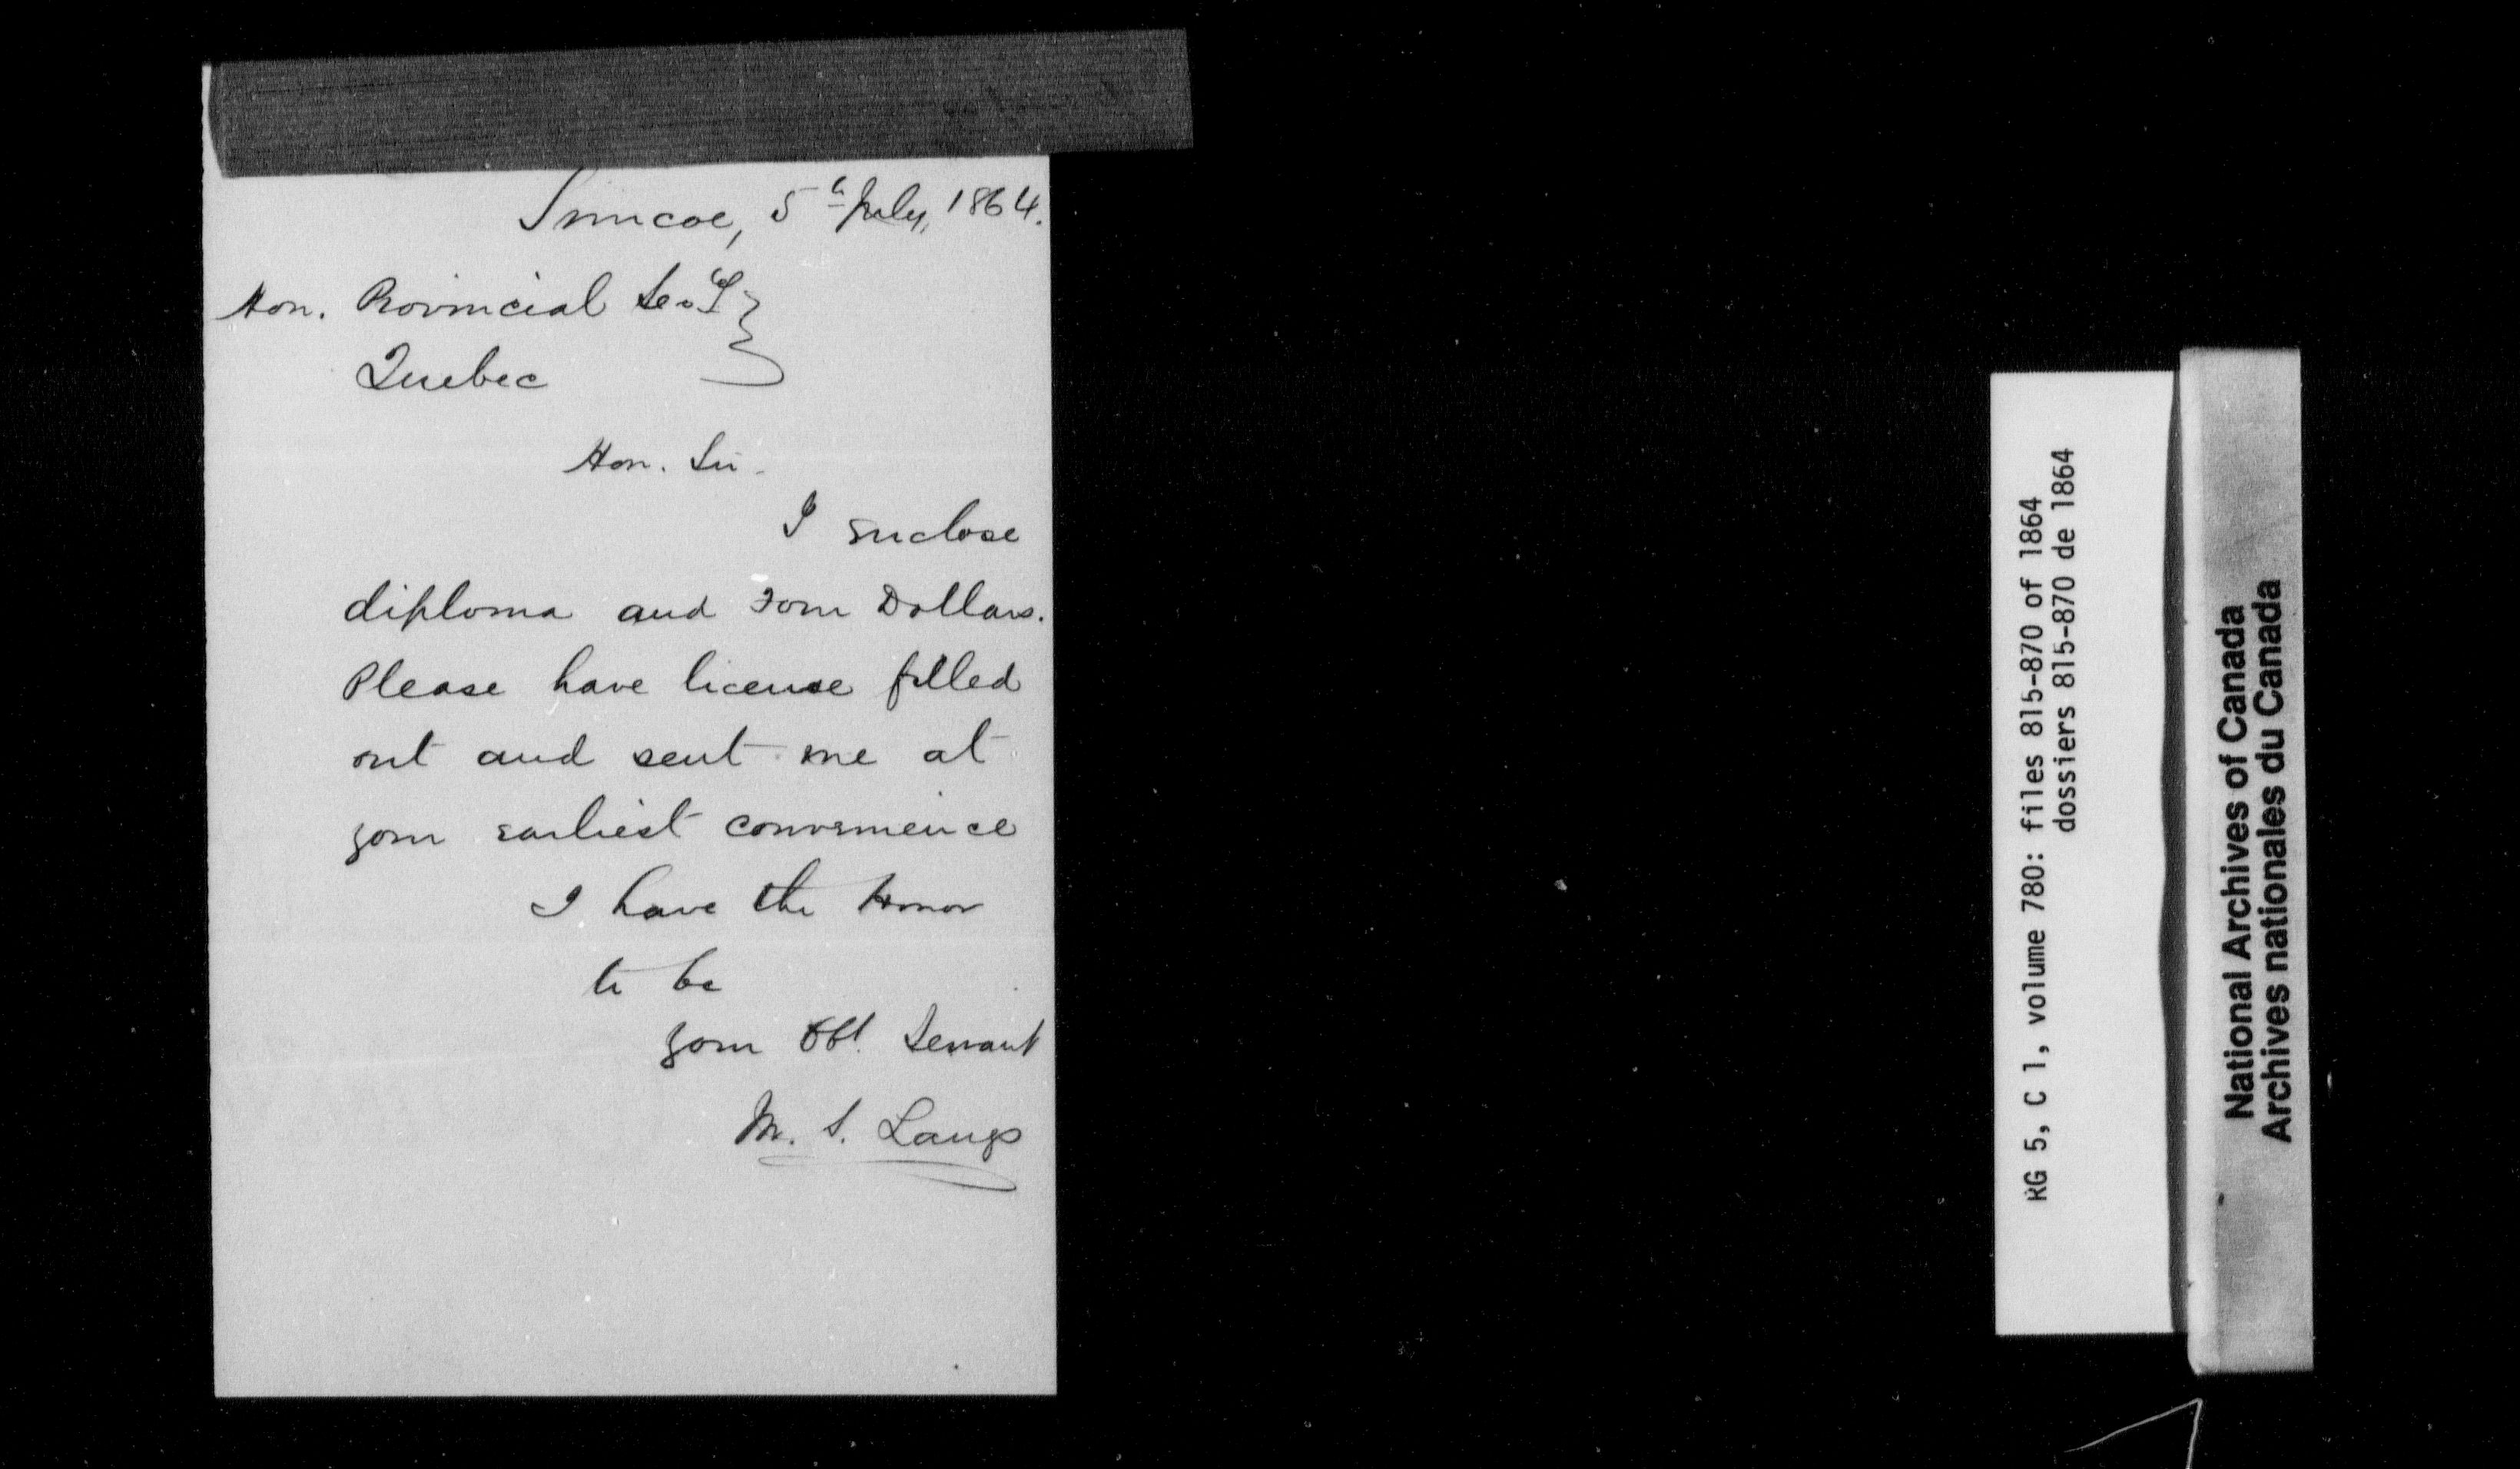 Simcoe, 5th July, 1864.
Hon. Provincial Secy
Quebec
Hon. Sir.
I enclose
diploma and Four Dollars.
Please have license filled
out and sent me at
your earliest convenience
I have the Honor
to be
your Obt. Servant
M. S. Langs
RG 5, C 1, volume 780: files 815-870 of 1864
dossiers 815-870 de 1864
National Archives of Canada
Archives nationales du Canada